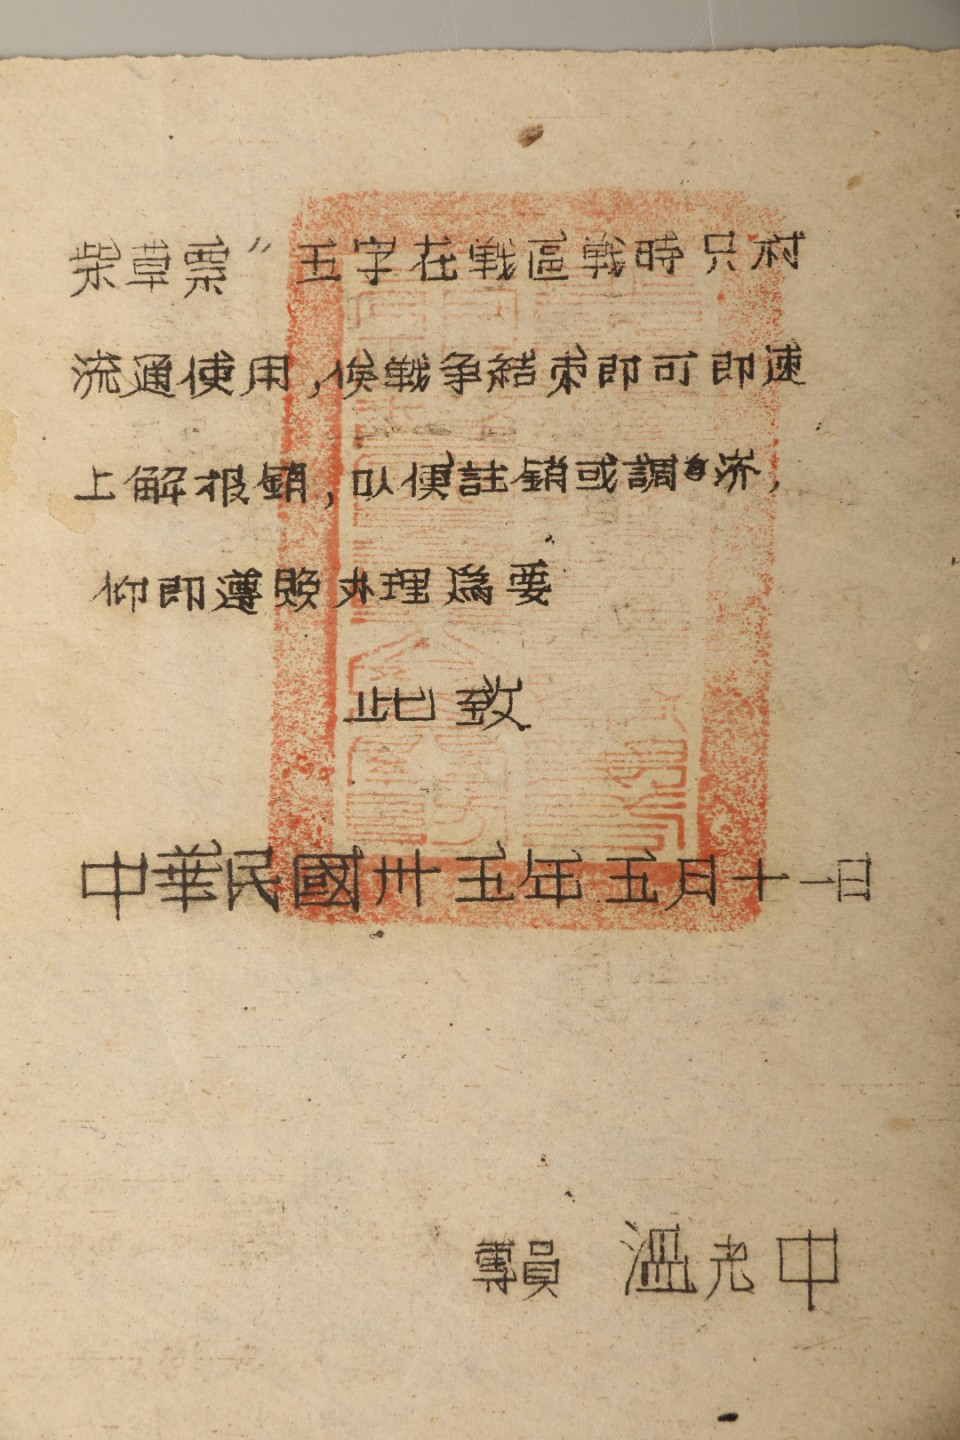 柴草票”五字在戰區戰時只村
流通使用,俟戰争結束即可即速
上解报銷,以便註銷或調済,
仰即遵照办理為要
此致
中華民國卅五年五月十一日
專員 溫光中